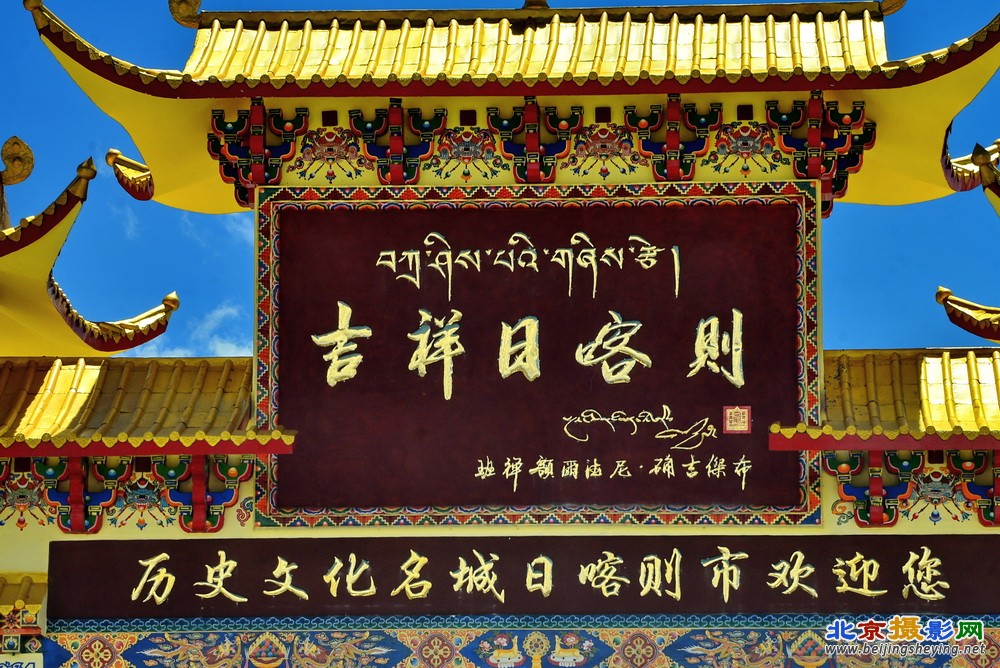 བཀྲ་ཤིས་པའི་གཞིས་རྩེ།
吉祥日喀則
班禪額爾德尼·确吉傑布
历史文化名城日喀则市欢迎您
北京摄影网
www.beijingsheying.net